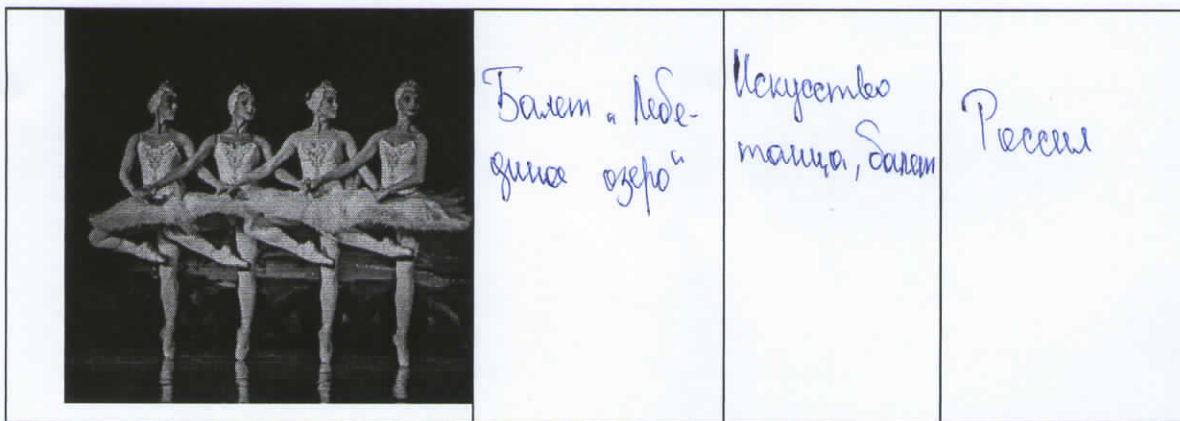 Балет „Лебе-
диное озеро“
Искусство
танца, балет
Россия